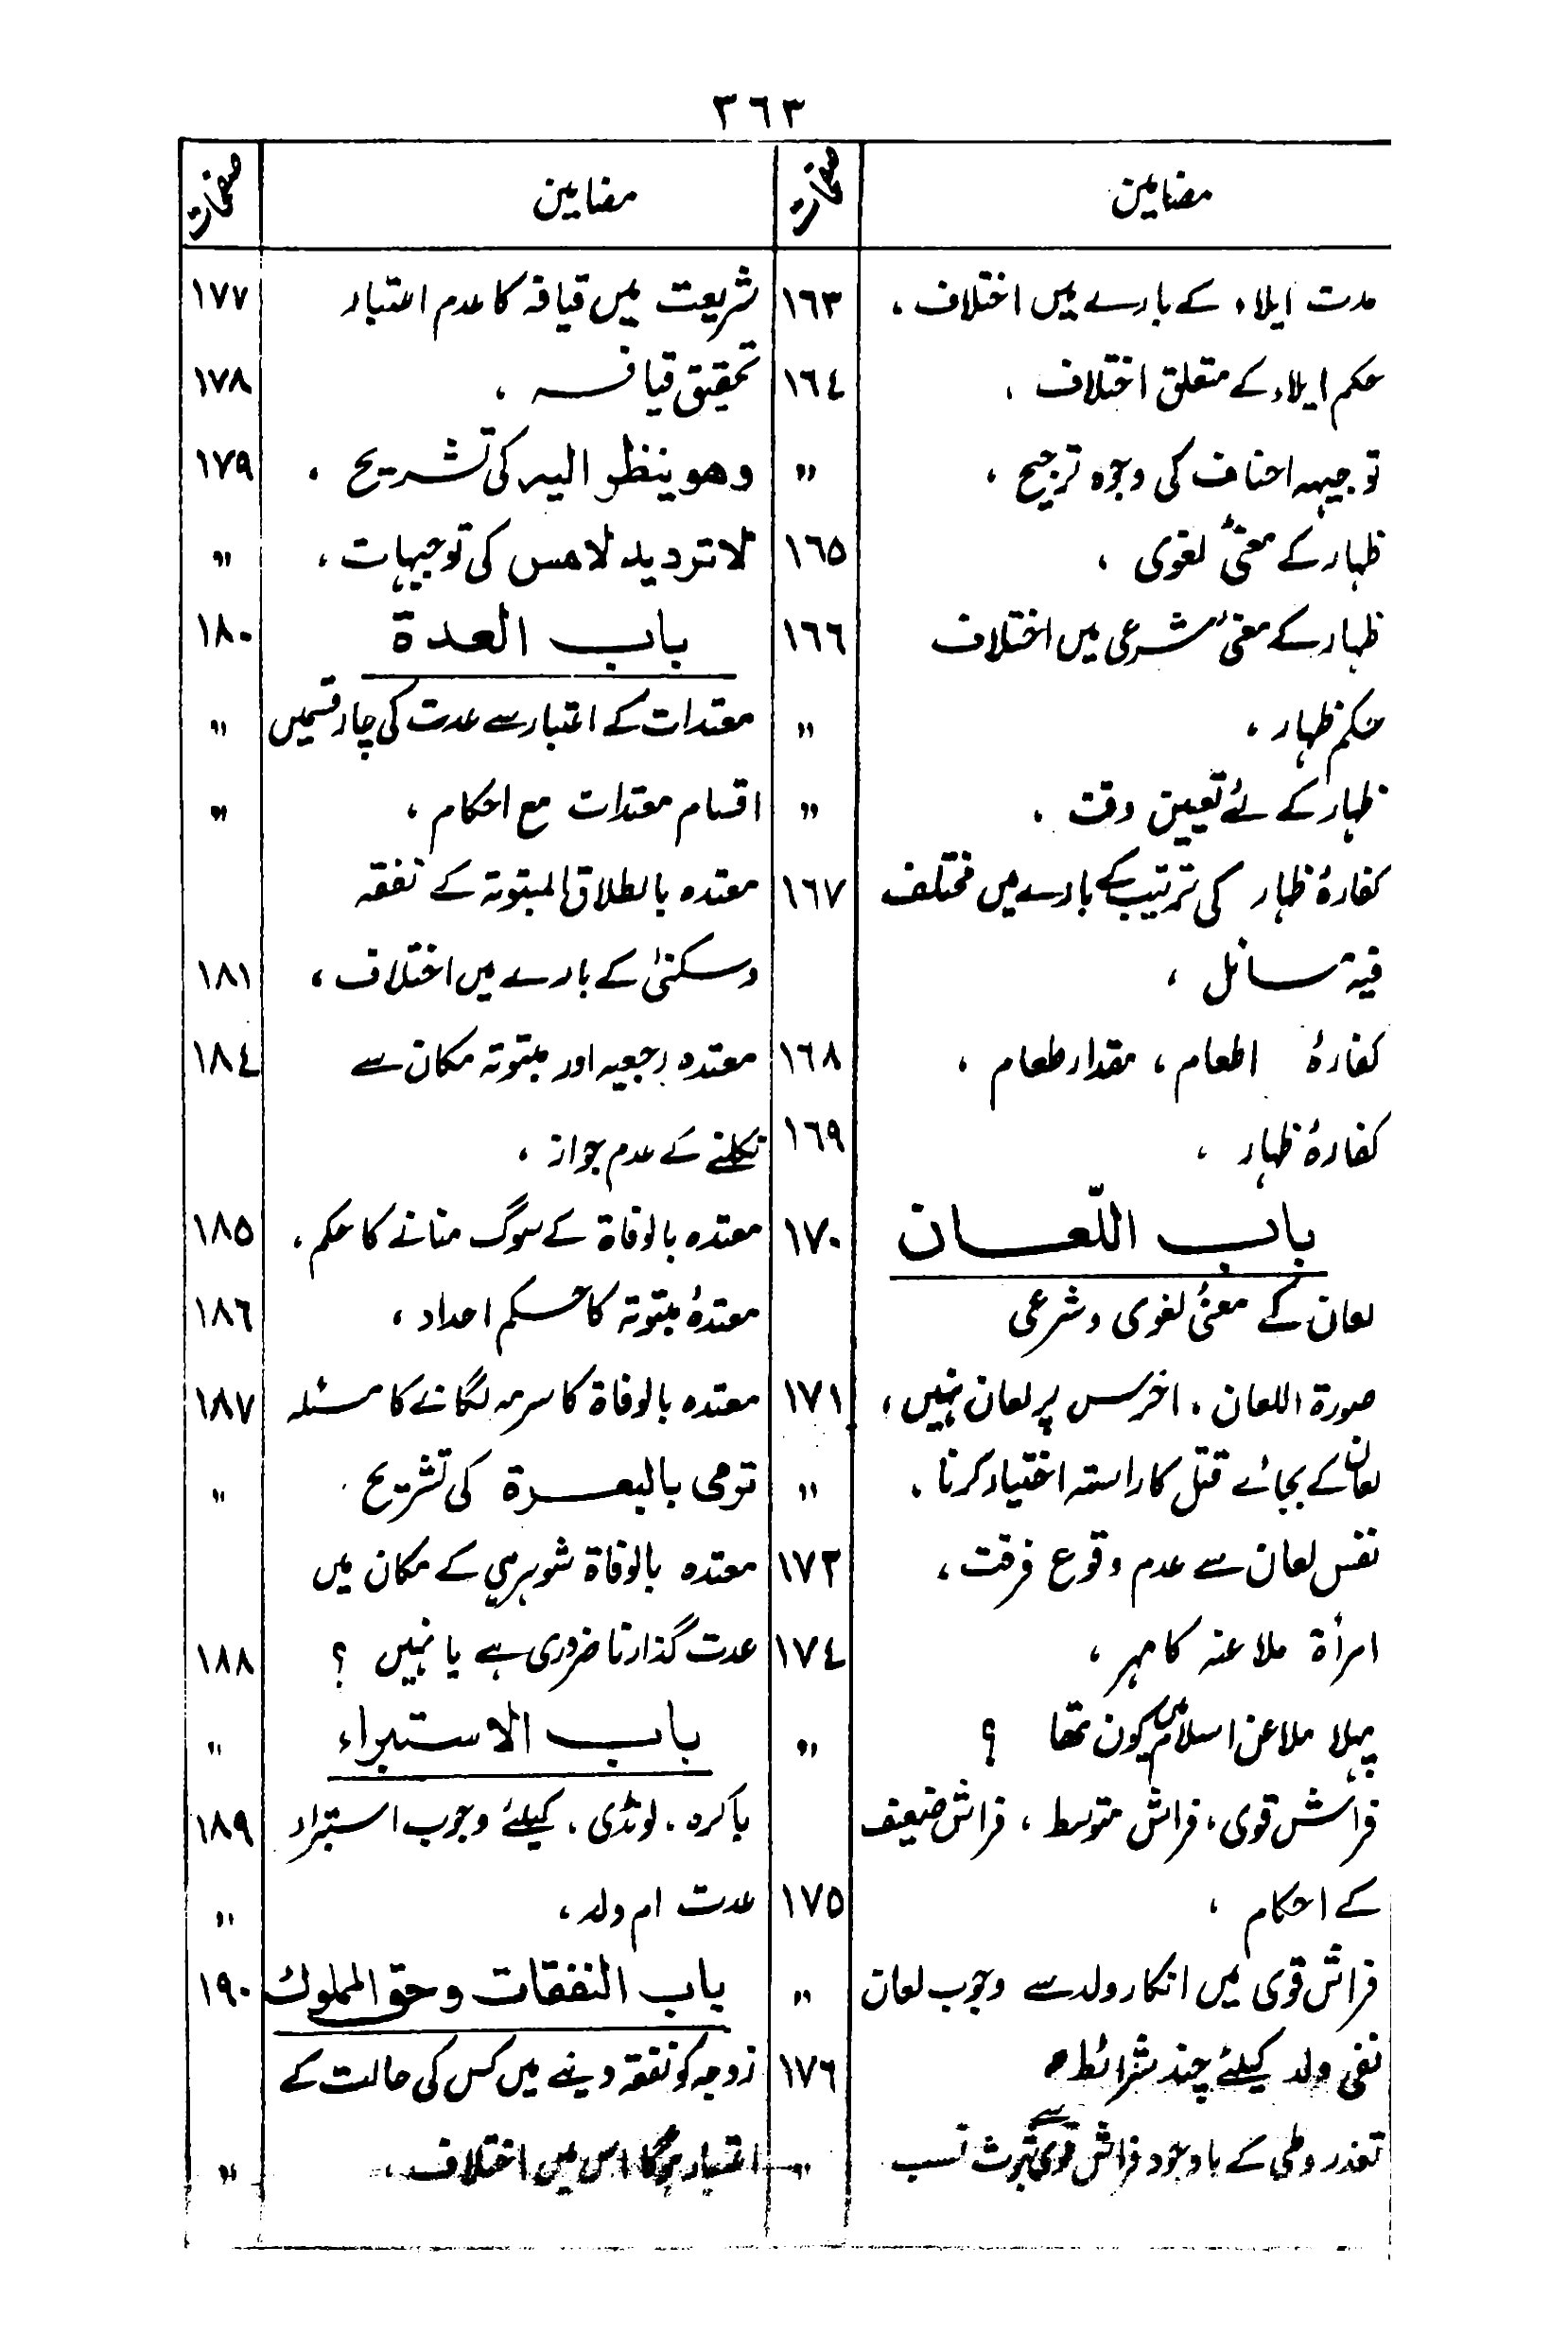 ٣٦٣
مضامین صفحات
مدت ایلاء کے بارے میں اختلاف ، ١٦٣
حکم ایلاء کے متعلق اختلاف ، ١٦٤
توجیہہ احناف کی وجوہ ترجیح ، "
ظہار کے معنیٰ لغوی ، ١٦٥
ظہار کے معنیٰ شرعی میں اختلاف ١٦٦
حکم ظہار ، "
ظہار کے لئے تعیین وقت ، "
کفارۂ ظہار کی ترتیب کے بارے میں مختلف ١٦٧
فیہ مسائل ،
کفارۂ اطعام ، مقدار طعام ، ١٦٨
کفارۂ ظہار ، ١٦٩
باب اللّعان ١٧٠
لعان کے معنیٔ لغوی و شرعی
صورة اللعان ، اخرس پر لعان نہیں ، ١٧١
لعان کے بجائے قتل کا راستہ اختیار کرنا ، "
نفس لعان سے عدم وقوع فرقت ، ١٧٢
امرأة ملاعنہ کا مہر ، ١٧٤
پہلا ملاعن اسلام میں کون تھا ؟ "
فراش قوی ، فراش متوسط ، فراش ضعیف
کے احکام ، ١٧٥
فراش قوی میں انکار ولد سے وجوب لعان "
نفی ولد کیلئے چند شرائط ١٧٦
تعذر وطی کے باوجود فراش قوی سے ثبوت نسب "
مضامین صفحات
شریعت میں قیافہ کا عدم اعتبار ١٧٧
تحقیق قیافہ ، ١٧٨
وهو ینظر الیہ کی تشریح ، ١٧٩
لا ترد ید لامس کی توجیہات ، "
باب العدة ١٨٠
معتدات کے اعتبار سے عدت کی چار قسمیں "
اقسام معتدات مع احکام ، "
معتدہ بالطلاق المبتوتہ کے نفقہ
وسکنیٰ کے بارے میں اختلاف ، ١٨١
معتدہ رجعیہ اور مبتوتہ مکان سے ١٨٤
نکلنے کے عدم جواز ،
معتدہ بالوفاة کے سوگ منانے کا حکم ، ١٨٥
معتدۂ مبتوتہ کا حکم احداد ، ١٨٦
معتدہ بالوفاة کا سرمہ لگانے کا مسئلہ ١٨٧
ترمی بالبعرة کی تشریح "
معتدہ بالوفاة شوہر ہی کے مکان میں
عدت گذارنا ضروری ہے یا نہیں ؟ ١٨٨
باب الاستبراء "
باکرہ ، لونڈی ، کیلئے وجوب استبراء ١٨٩
عدت ام ولد ، "
باب النفقات وحق المملوک ١٩٠
زوجہ کو نفقہ دینے میں کس کی حالت کے
اعتبار ہوگا اس میں اختلاف ، "